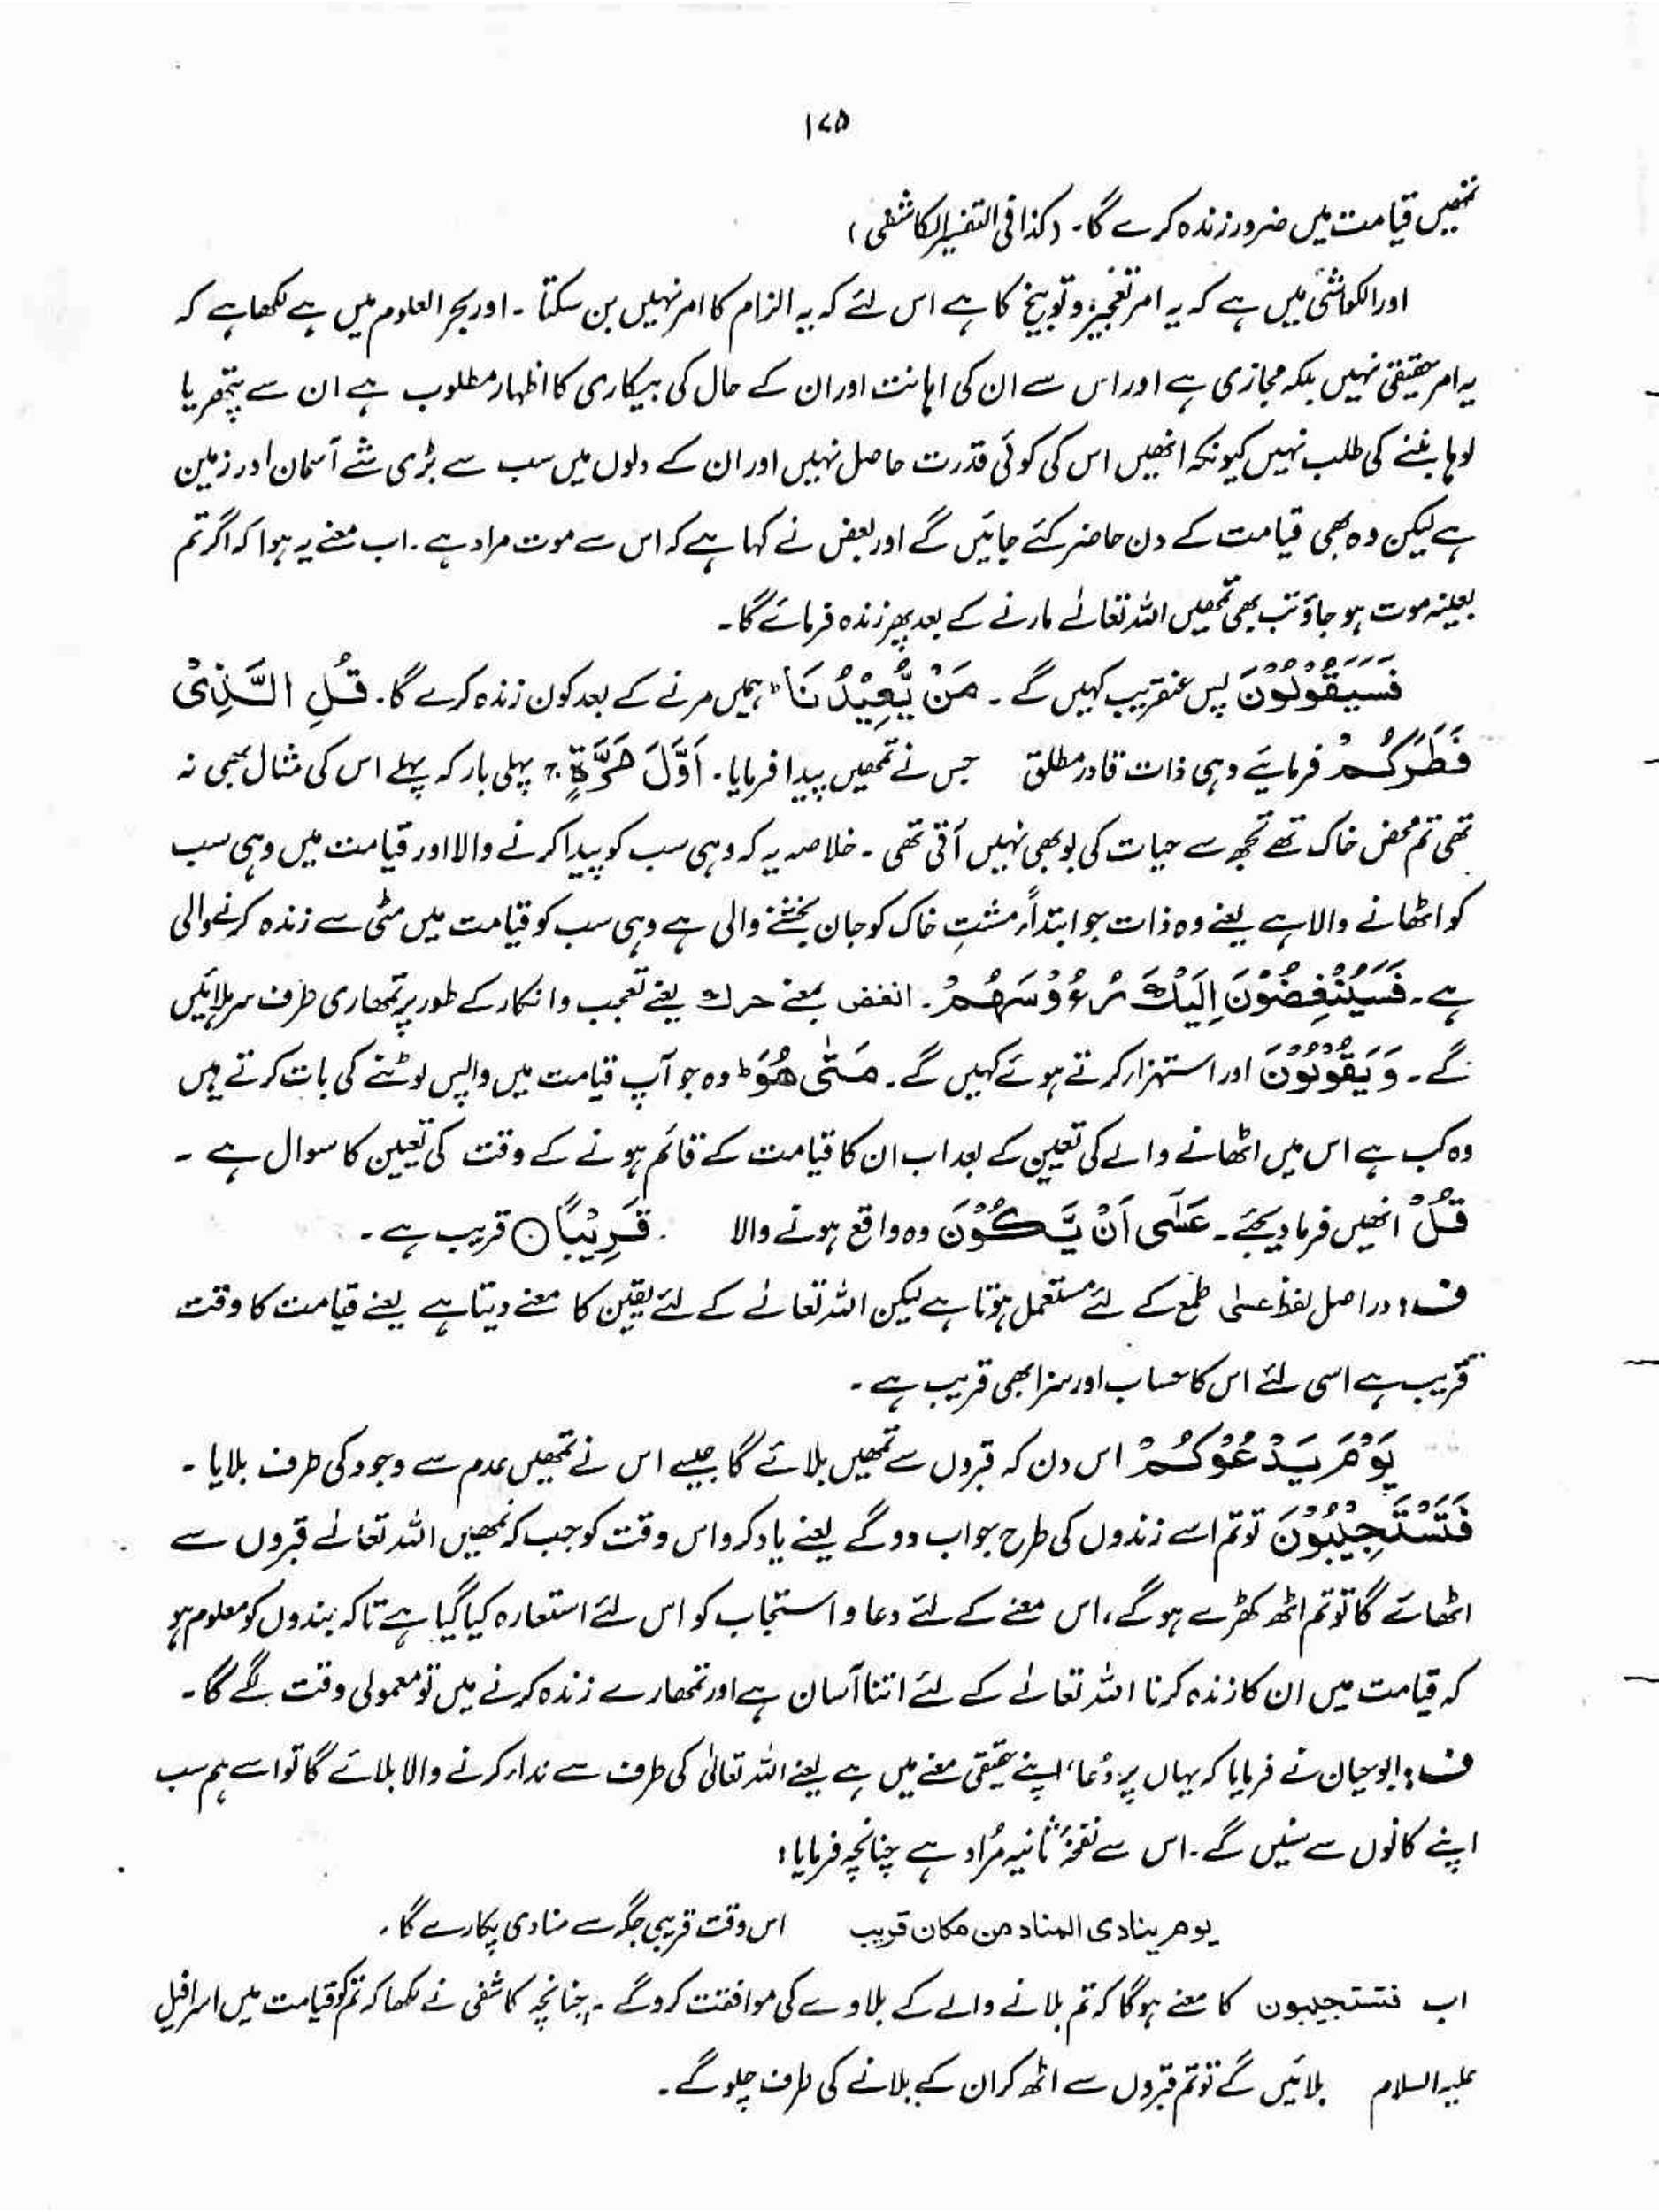 ۱۷۵
تمھیں قیامت میں ضرور زندہ کرے گا۔ (کذا فی التفسیر الکاشفی)
اور الکواشی میں ہے کہ یہ امر تعجیز و توبیخ کا ہے اس لئے کہ یہ الزام کا امر نہیں بن سکتا ۔ اور بحر العلوم میں ہے لکھا ہے کہ
یہ امر حقیقی نہیں بلکہ مجازی ہے اور اس سے ان کی اہانت اور ان کے حال کی بیکاری کا اظہار مطلوب ہے ان سے پتھر یا
لوہا بننے کی طلب نہیں کیونکہ انھیں اس کی کوئی قدرت حاصل نہیں اور ان کے دلوں میں سب سے بڑی شے آسمان اور زمین
ہے لیکن وہ بھی قیامت کے دن حاضر کئے جائیں گے اور بعض نے کہا ہے کہ اس سے موت مراد ہے ۔ اب معنے یہ ہوا کہ اگر تم
بعینہ موت ہو جاؤ تب بھی تمھیں اللہ تعالےٰ مارنے کے بعد پھر زندہ فرمائے گا ۔
فَسَيَقُوْلُوْنَ پس عنقریب کہیں گے ۔ مَنْ يُّعِيْدُنَا ؕ ہمیں مرنے کے بعد کون زندہ کرے گا ۔ قُلِ الَّذِیْ
فَطَرَكُمْ فرمایئے وہی ذات قادر مطلق جس نے تمھیں پیدا فرمایا ۔ اَوَّلَ مَرَّةٍ ۚ پہلی بار کہ پہلے اس کی مثال بھی نہ
تھی تم محض خاک تھے تجھ سے حیات کی بو بھی نہیں آتی تھی ۔ خلاصہ یہ کہ وہی سب کو پیدا کرنے والا اور قیامت میں وہی سب
کو اٹھانے والا ہے یعنے وہ ذات جو ابتداً مشتِ خاک کو جان بخشنے والی ہے وہی سب کو قیامت میں مٹی سے زندہ کرنے والی
ہے ۔ فَسَيُنْغِضُوْنَ اِلَيْكَ رُءُوْسَهُمْ ۔ انغض بمعنے حرك یعنے تعجب و انکار کے طور پر تمھاری طرف سر ہلائیں
گے ۔ وَ يَقُوْلُوْنَ اور استہزار کرتے ہوئے کہیں گے ۔ مَتٰی هُوَ ؕ وہ جو آپ قیامت میں واپس لوٹنے کی بات کرتے ہیں
وہ کب ہے اس میں اٹھانے والے کی تعیین کے بعد اب ان کا قیامت کے قائم ہونے کے وقت کی تعیین کا سوال ہے ۔
قُلْ انھیں فرما دیجئے ۔ عَسٰۤی اَنْ يَّكُوْنَ وہ واقع ہونے والا قَرِيْبًا ○ قریب ہے ۔
ف : دراصل لفظ عسیٰ طمع کے لئے مستعمل ہوتا ہے لیکن اللہ تعالےٰ کے لئے یقین کا معنے دیتا ہے یعنے قیامت کا وقت
قریب ہے اسی لئے اس کا حساب اور سزا بھی قریب ہے ۔
يَوْمَ يَدْعُوْكُمْ اس دن کہ قبروں سے تمھیں بلائے گا جیسے اس نے تمھیں عدم سے وجود کی طرف بلایا ۔
فَتَسْتَجِيْبُوْنَ تو تم اسے زندوں کی طرح جواب دو گے یعنے یاد کرو اس وقت کو جب کہ تمھیں اللہ تعالےٰ قبروں سے
اٹھائے گا تو تم اٹھ کھڑے ہو گے ، اس معنے کے لئے دعا و استجاب کو اس لئے استعارہ کیا گیا ہے تاکہ بندوں کو معلوم ہو
کہ قیامت میں ان کا زندہ کرنا اللہ تعالےٰ کے لئے اتنا آسان ہے اور تمھارے زندہ کرنے میں تو معمولی وقت لگے گا ۔
ف : ابوحیان نے فرمایا کہ یہاں پر "دُعا" اپنے حقیقی معنے میں ہے یعنے اللہ تعالیٰ کی طرف سے ندار کرنے والا بلائے گا تو اسے ہم سب
اپنے کانوں سے سنیں گے ۔ اس سے نفخۂ ثانیہ مُراد ہے چنانچہ فرمایا :
یوم ینادی المناد من مکان قریب اس وقت قریبی جگہ سے منادی پکارے گا ۔
اب فتستجیبون کا معنے ہو گا کہ تم بلانے والے کے بلاوے کی موافقت کرو گے ۔ چنانچہ کاشفی نے لکھا کہ تم کو قیامت میں اسرافیل
علیہ السلام بلائیں گے تو تم قبروں سے اٹھ کر ان کے بلانے کی طرف چلو گے ۔